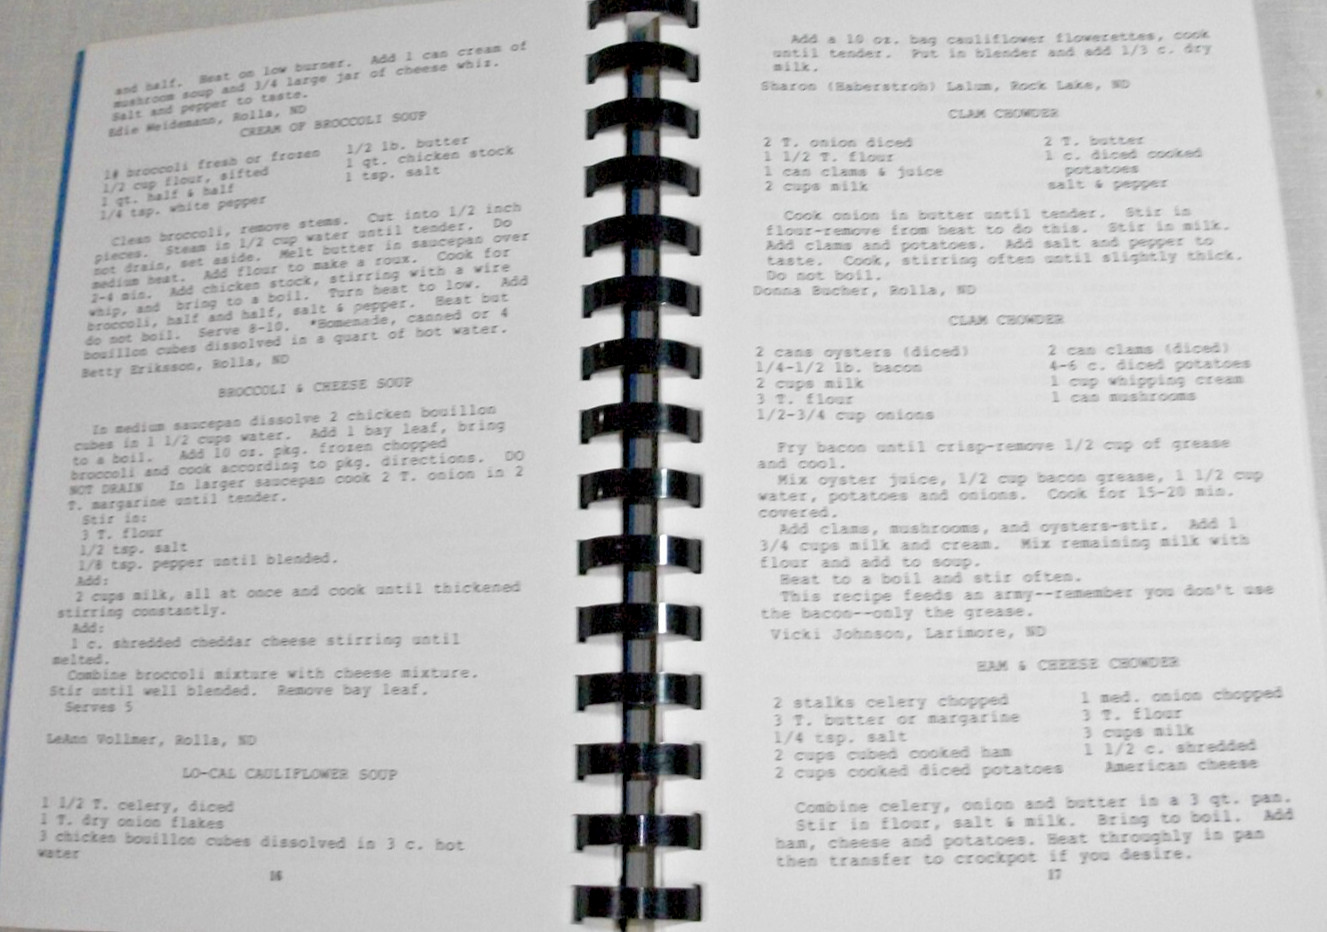 and half. Heat on low burner. Add 1 can cream of
mushroom soup and 3/4 large jar of cheese whiz.
Salt and pepper to taste.
Edie Weidemann, Rolla, ND
CREAM OF BROCCOLI SOUP
1# broccoli fresh or frozen 1/2 lb. butter
1/2 cup flour, sifted 1 qt. chicken stock
1 qt. half & half 1 tsp. salt
1/4 tsp. white pepper
Clean broccoli, remove stems. Cut into 1/2 inch
pieces. Steam in 1/2 cup water until tender. Do
not drain, set aside. Melt butter in saucepan over
medium heat. Add flour to make a roux. Cook for
2-4 min. Add chicken stock, stirring with a wire
whip, and bring to a boil. Turn heat to low. Add
broccoli, half and half, salt & pepper. Heat but
do not boil. Serve 8-10. *Homemade, canned or 4
bouillon cubes dissolved in a quart of hot water.
Betty Eriksson, Rolla, ND
BROCCOLI & CHEESE SOUP
In medium saucepan dissolve 2 chicken bouillon
cubes in 1 1/2 cups water. Add 1 bay leaf, bring
to a boil. Add 10 oz. pkg. frozen chopped
broccoli and cook according to pkg. directions. DO
NOT DRAIN In larger saucepan cook 2 T. onion in 2
T. margarine until tender.
Stir in:
3 T. flour
1/2 tsp. salt
1/8 tsp. pepper until blended.
Add:
2 cups milk, all at once and cook until thickened
stirring constantly.
Add:
1 c. shredded cheddar cheese stirring until
melted.
Combine broccoli mixture with cheese mixture.
Stir until well blended. Remove bay leaf.
Serves 5
LeAnn Vollmer, Rolla, ND
LO-CAL CAULIFLOWER SOUP
1 1/2 T. celery, diced
1 T. dry onion flakes
3 chicken bouillon cubes dissolved in 3 c. hot
water
16
Add a 10 oz. bag cauliflower flowerettes, cook
until tender. Put in blender and add 1/3 c. dry
milk.
Sharon (Haberstroh) Lalum, Rock Lake, ND
CLAM CHOWDER
2 T. onion diced 2 T. butter
1 1/2 T. flour 1 c. diced cooked
1 can clams & juice potatoes
2 cups milk salt & pepper
Cook onion in butter until tender. Stir in
flour-remove from heat to do this. Stir in milk.
Add clams and potatoes. Add salt and pepper to
taste. Cook, stirring often until slightly thick.
Do not boil.
Donna Bucher, Rolla, ND
CLAM CHOWDER
2 cans oysters (diced) 2 can clams (diced)
1/4-1/2 lb. bacon 4-6 c. diced potatoes
2 cups milk 1 cup whipping cream
3 T. flour 1 can mushrooms
1/2-3/4 cup onions
Fry bacon until crisp-remove 1/2 cup of grease
and cool.
Mix oyster juice, 1/2 cup bacon grease, 1 1/2 cup
water, potatoes and onions. Cook for 15-20 min.
covered.
Add clams, mushrooms, and oysters-stir. Add 1
3/4 cups milk and cream. Mix remaining milk with
flour and add to soup.
Heat to a boil and stir often.
This recipe feeds an army--remember you don't use
the bacon--only the grease.
Vicki Johnson, Larimore, ND
HAM & CHEESE CHOWDER
2 stalks celery chopped 1 med. onion chopped
3 T. butter or margarine 3 T. flour
1/4 tsp. salt 3 cups milk
2 cups cubed cooked ham 1 1/2 c. shredded
2 cups cooked diced potatoes American cheese
Combine celery, onion and butter in a 3 qt. pan.
Stir in flour, salt & milk. Bring to boil. Add
ham, cheese and potatoes. Heat throughly in pan
then transfer to crockpot if you desire.
17